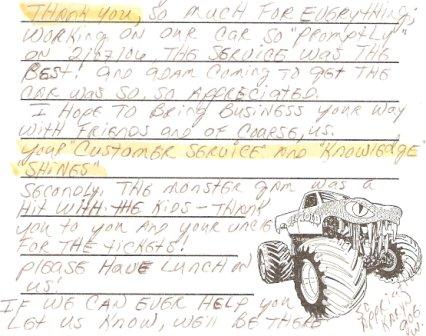 THANK YOU, SO MUCH FOR EVERYTHING,
WORKING ON OUR CAR SO "PROMPTLY"
ON 2/27/06 THE SERVICE WAS THE
BEST! AND ADAM COMING TO GET THE
CAR WAS SO, SO APPRECIATED.
I HOPE TO BRING BUSINESS YOUR WAY
WITH FRIENDS AND OF COARSE, US.
YOUR "CUSTOMER SERVICE AND "KNOWLEDGE"
"SHINES"
SECONDLY, THE MONSTER JAM WAS A
HIT WITH THE KIDS - THANK
YOU TO YOU AND YOUR UNCLE
FOR THE TICKETS!
PLEASE HAVE LUNCH ON
US!
IF WE CAN EVER HELP YOU
LET US KNOW, WE'LL BE THERE